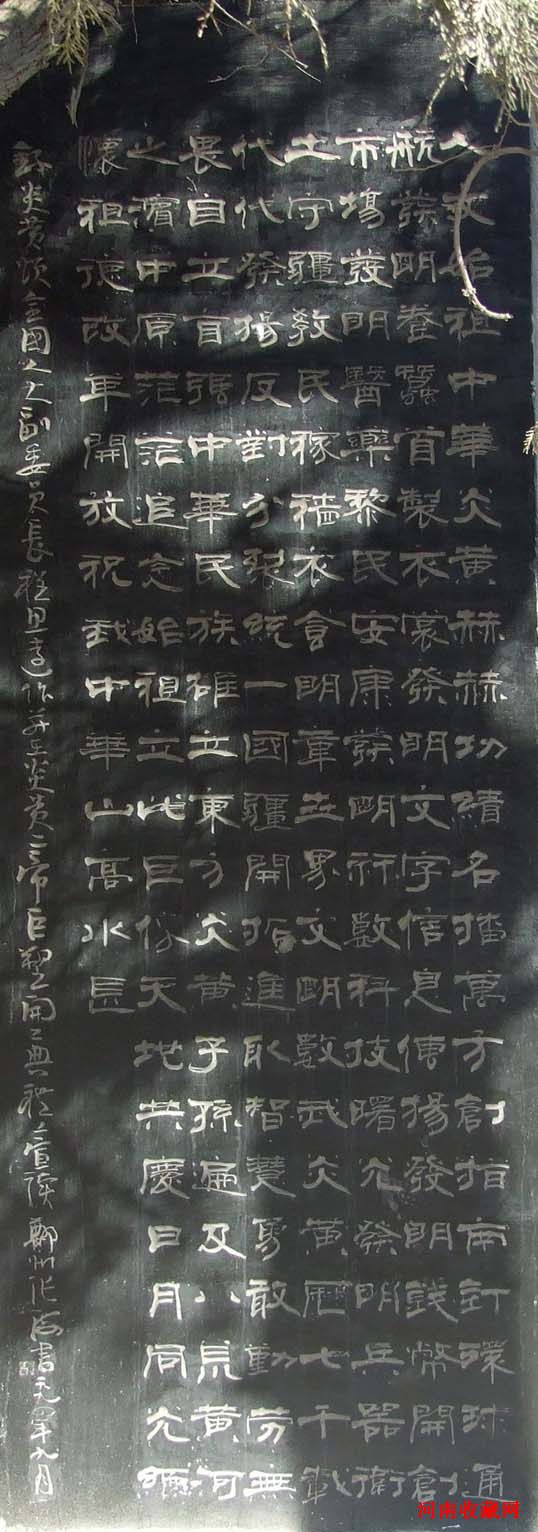 人文始祖中華炎黃赫赫功績名播萬方創指南針環球通
航發明養蠶首製衣裳發明文字信息傳揚發明錢幣開創
市場發明醫藥黎民安康發明數科技曙光發明兵器衛
土守疆教民稼穡衣食明章世界文明數我炎黃歷七千載
代代發揚反對分裂統一國疆開拓進取智慧勇敢勤勞無
畏自立自強中華民族雄立東方炎黃子孫遍及八荒黃河
之濱中原茫茫追念始祖立此巨像天地共慶日月同光緬
懷祖德改革開放祝我中華山高水長
錄炎黃頌全国人大副委员長程思遠作并在炎黃二帝巨塑開工典礼宣读 鄭州書年九月
河南收藏网